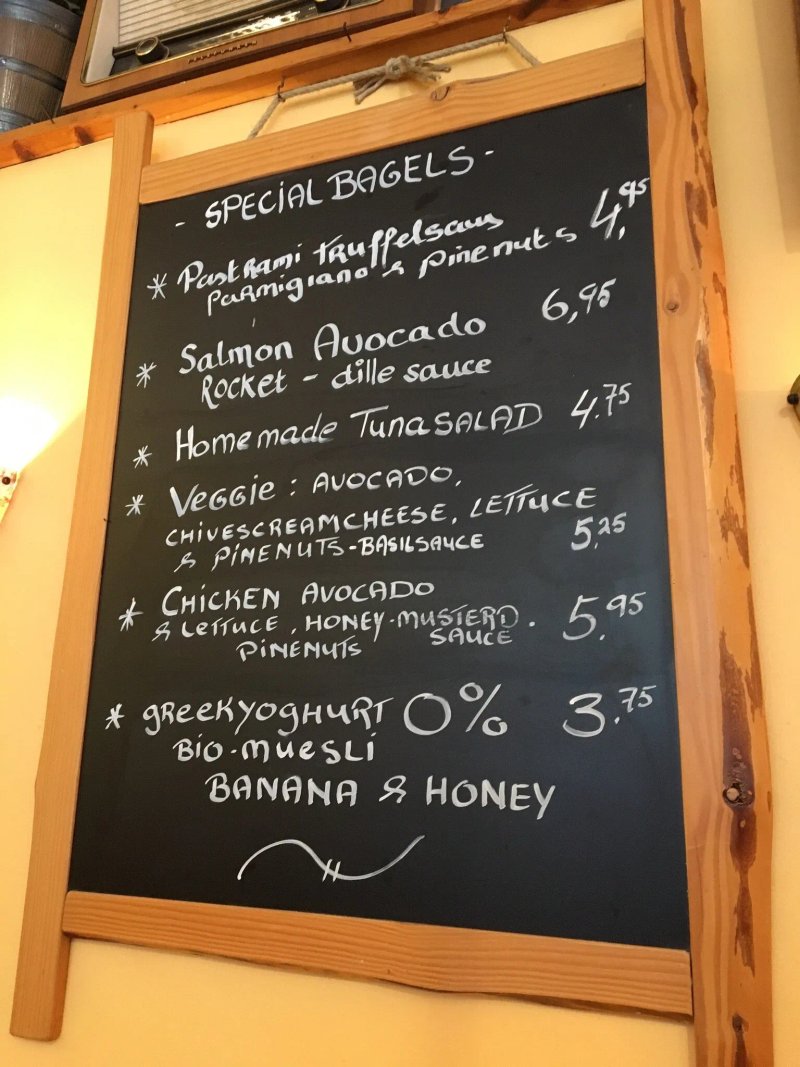 - SPECIAL BAGELS -
* Pastrami truffelsaus
Parmigiano & pinenuts 4,95
* Salmon Avocado 6,95
Rocket - dille sauce
* Homemade TunaSALAD 4.75
* Veggie: AVOCADO,
CHIVESCREAMCHEESE, LETTUCE
& PINENUTS-BASILSAUCE 5,25
* CHICKEN AVOCADO
& LETTUCE, HONEY-MUSTERD. 5.95
PINENUTS SAUCE
* GREEKYOGHURT 0% 3.75
BIO-MUESLI
BANANA & HONEY